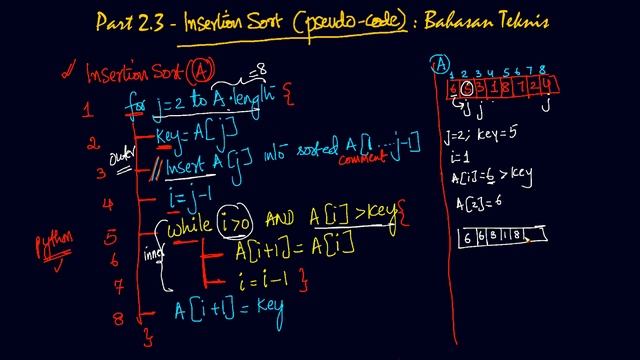 Part 2.3 - Insertion Sort (pseudo-code) : Bahasan Teknis
Insertion Sort (A)
=8
1 for j=2 to A.length {
2 Key=A[j]
outer
3 // Insert A[j] into sorted A[1....j-1]
comment
4 i=j-1
5 while i>0 AND A[i]>Key {
python
inner
6 A[i+1]=A[i]
7 i=i-1 }
8 A[i+1]=Key
}
A
1 2 3 4 5 6 7 8
6 5 3 1 8 7 2 4
j j j
j=2; Key=5
i=1
A[i]=6>Key
A[2]=6
6 6 3 1 8